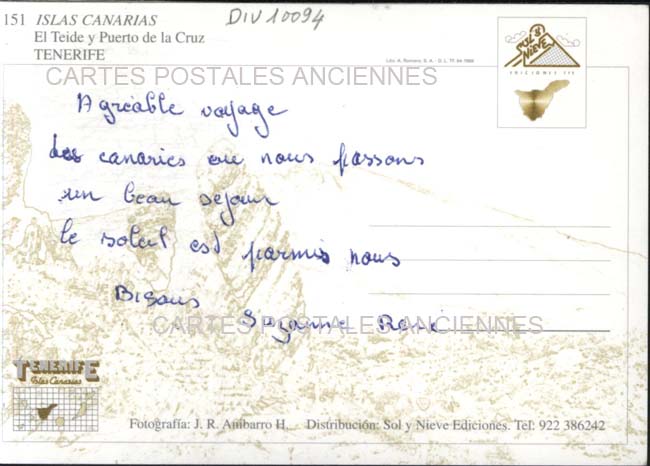 151 ISLAS CANARIAS
El Teide y Puerto de la Cruz
TENERIFE
DIV10094
Lito. A. Romero, S. A. - D. L. TF.
SOL & NIEVE
EDICIONES
CARTES POSTALES ANCIENNES
Agréable voyage
canaries ou nous passons
un beau sejour
le soleil est parmis nous
Bisous
Suzanne René
CARTES POSTALES ANCIENNES
TENERIFE
Islas Canarias
Fotografía: J. R. Anibarro H. Distribución: Sol y Nieve Ediciones. Tel: 922 386242